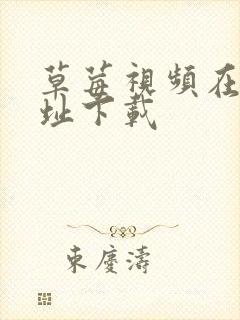 草莓視頻在
址下載
東慶濤